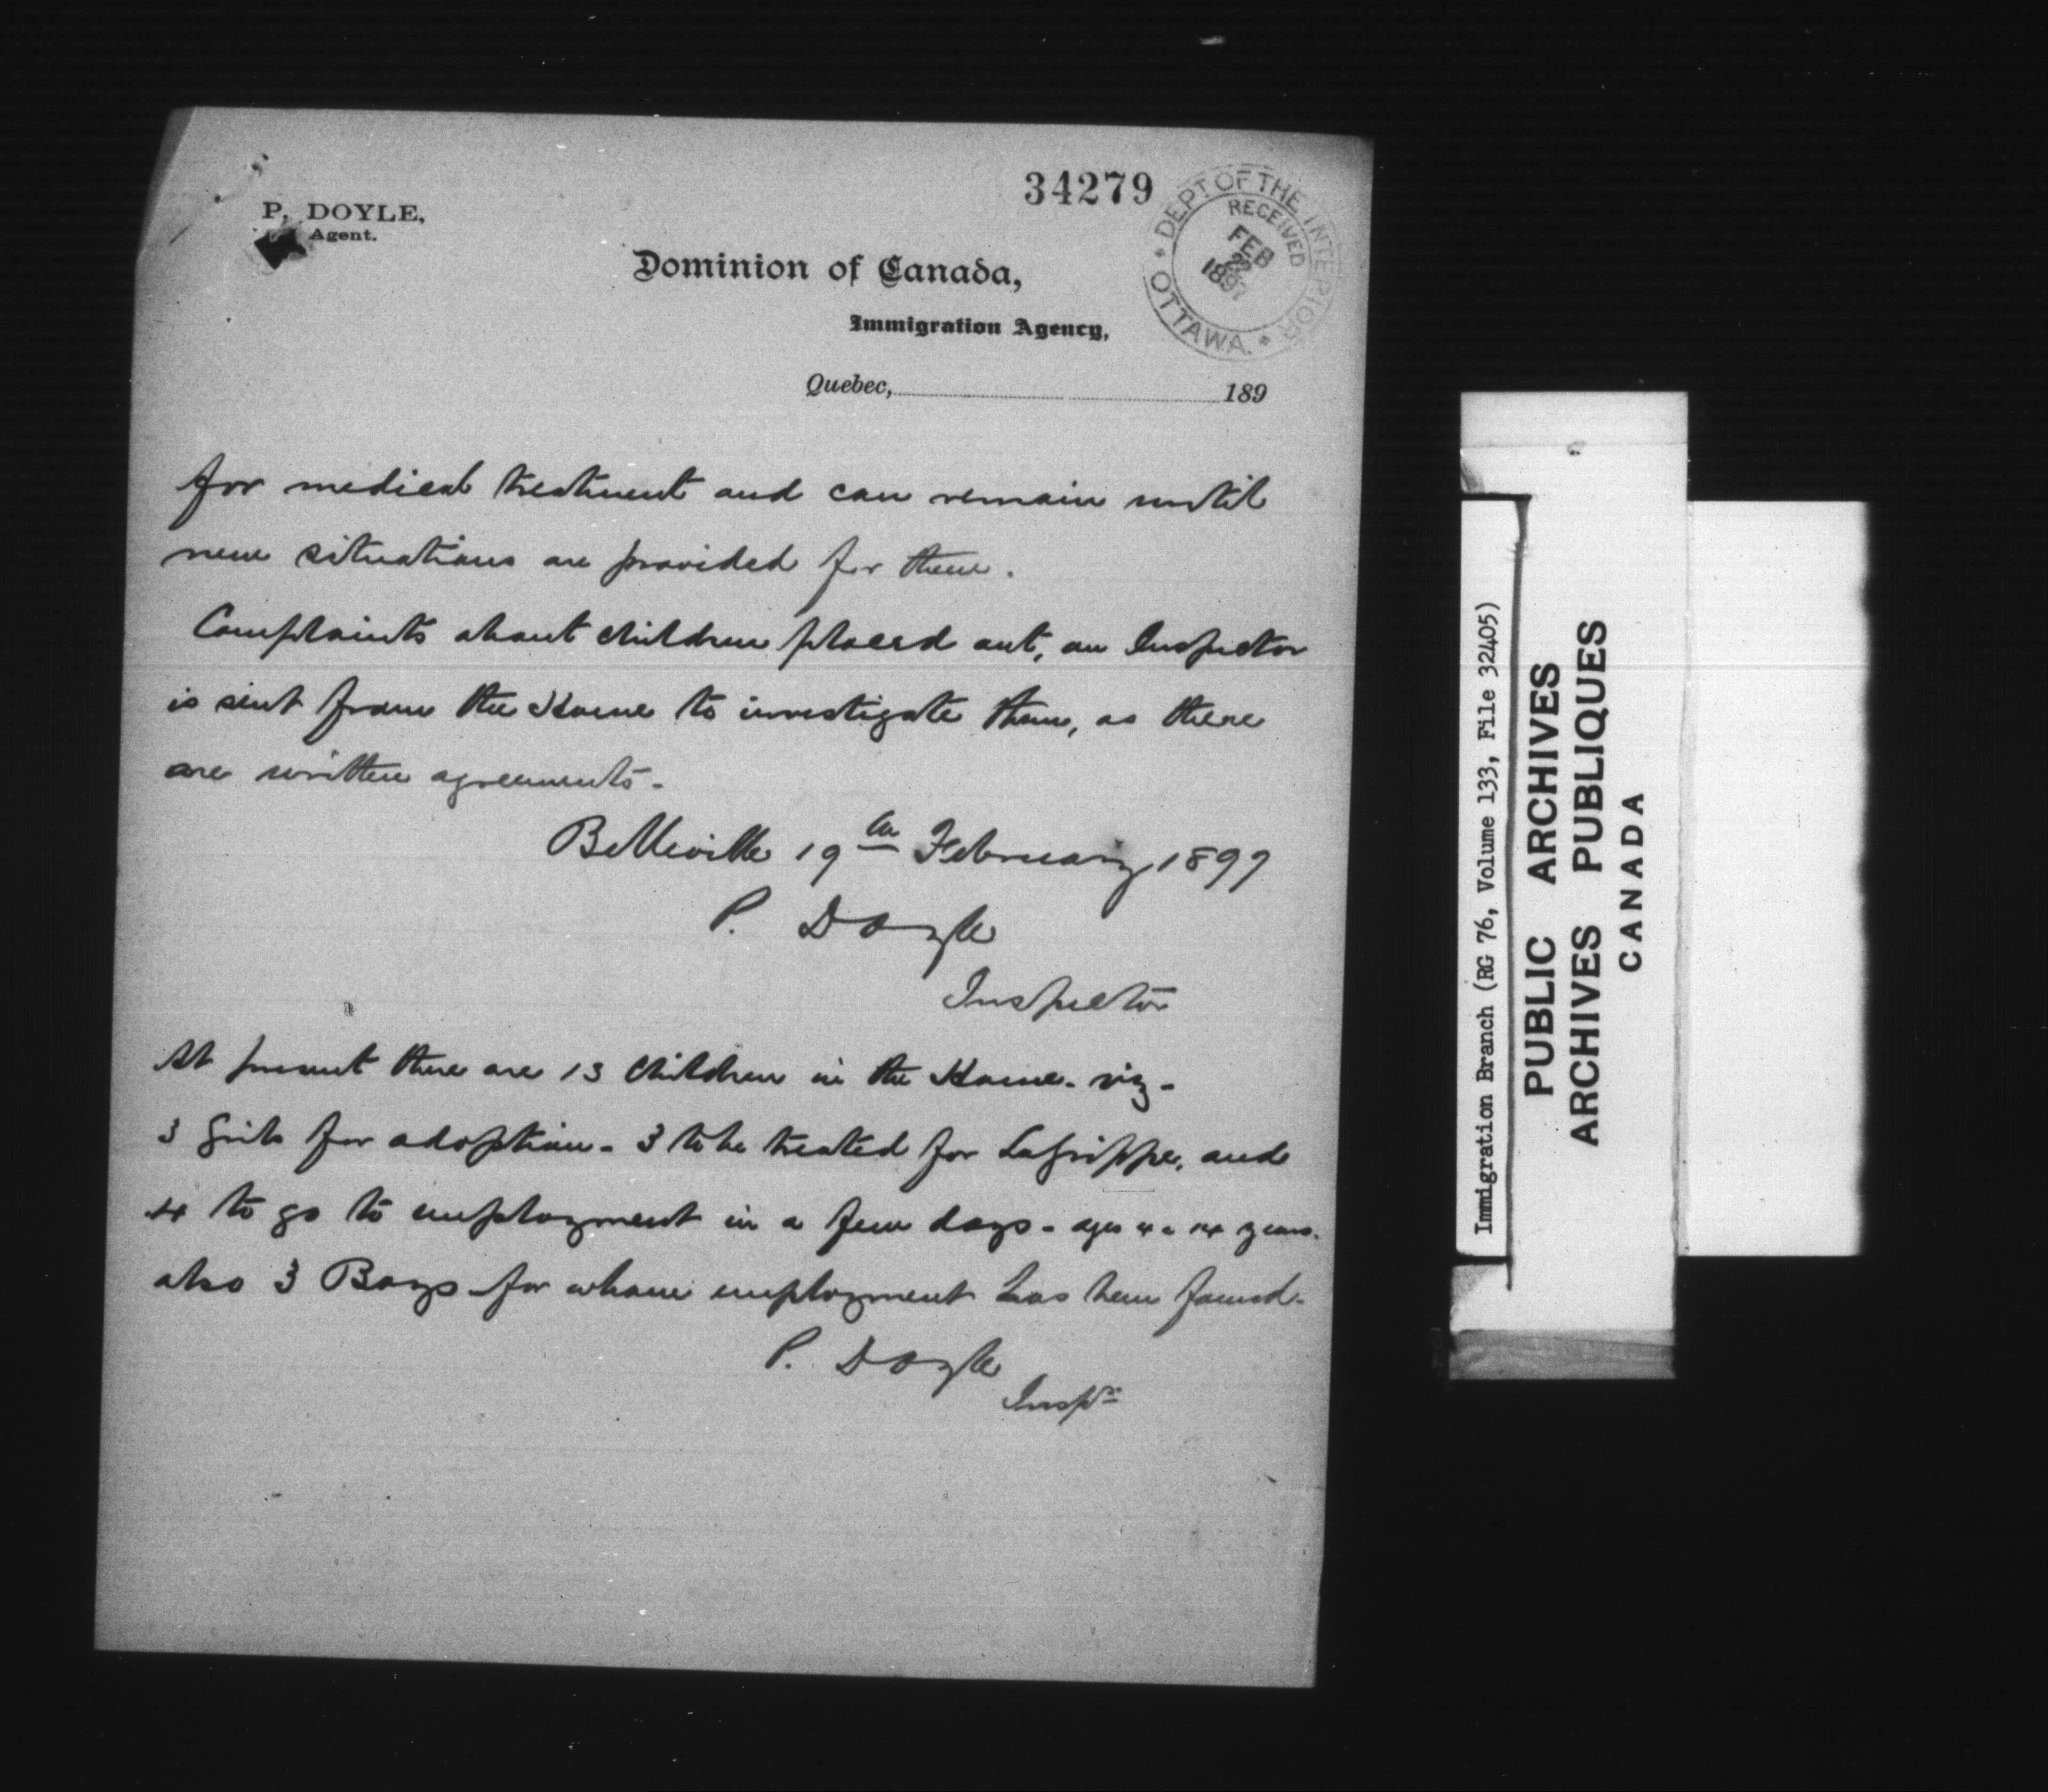 34279
P. DOYLE,
Agent.
DEPT OF THE INTERIOR
RECEIVED
FEB
1897
OTTAWA.
Dominion of Canada,
Immigration Agency,
Quebec, 189
for medical treatment and can remain until
new situations are provided for them.
Complaints about children placed out, an Inspector
is sent from the Home to investigate them, as there
are written agreements-
Belleville 19th February 1897
P. Doyle
Inspector
At present there are 13 Children in the Home- viz-
3 Girls for adoption- 3 to be treated for LaGrippe, and
4 to go to employment in a few days- ages 4 @ 14 years.
also 3 Boys for whom employment has been found-
P. Doyle
Inspr
Immigration Branch (RG 76, Volume 133, File 32405)
PUBLIC ARCHIVES
ARCHIVES PUBLIQUES
CANADA